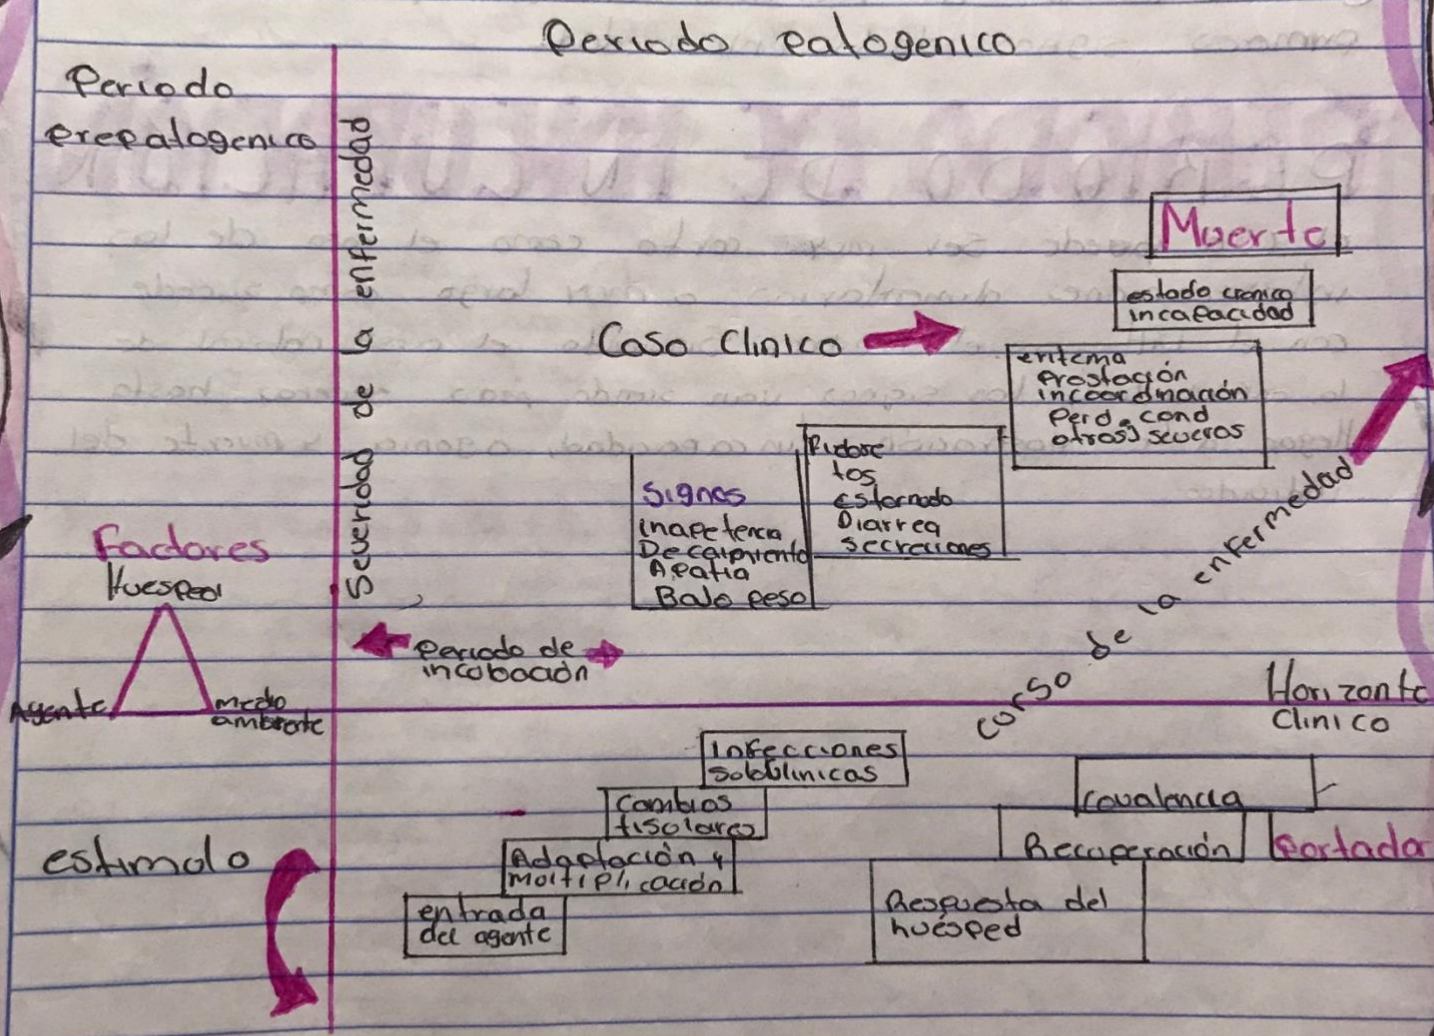 Periodo Patogenico
Periodo
Prepatogenico
Severidad de la enfermedad
Muerte
estado cronico
incapacidad
Caso Clinico
eritema
Prostación
incoordinación
Perd. cond
otros severos
Fiebre
tos
estornudo
Diarrea
secreciones
Signos
inapetencia
Decaimiento
Apatia
Bajo peso
Factores
Huesped
Agente
medio
ambiente
Periodo de
incubación
curso de la enfermedad
Horizonte
Clinico
Infecciones
subclinicas
Cambios
tisulares
Adaptación y
multiplicación
entrada
del agente
estimulo
covalencia
Recuperación
Portador
Respuesta del
huésped